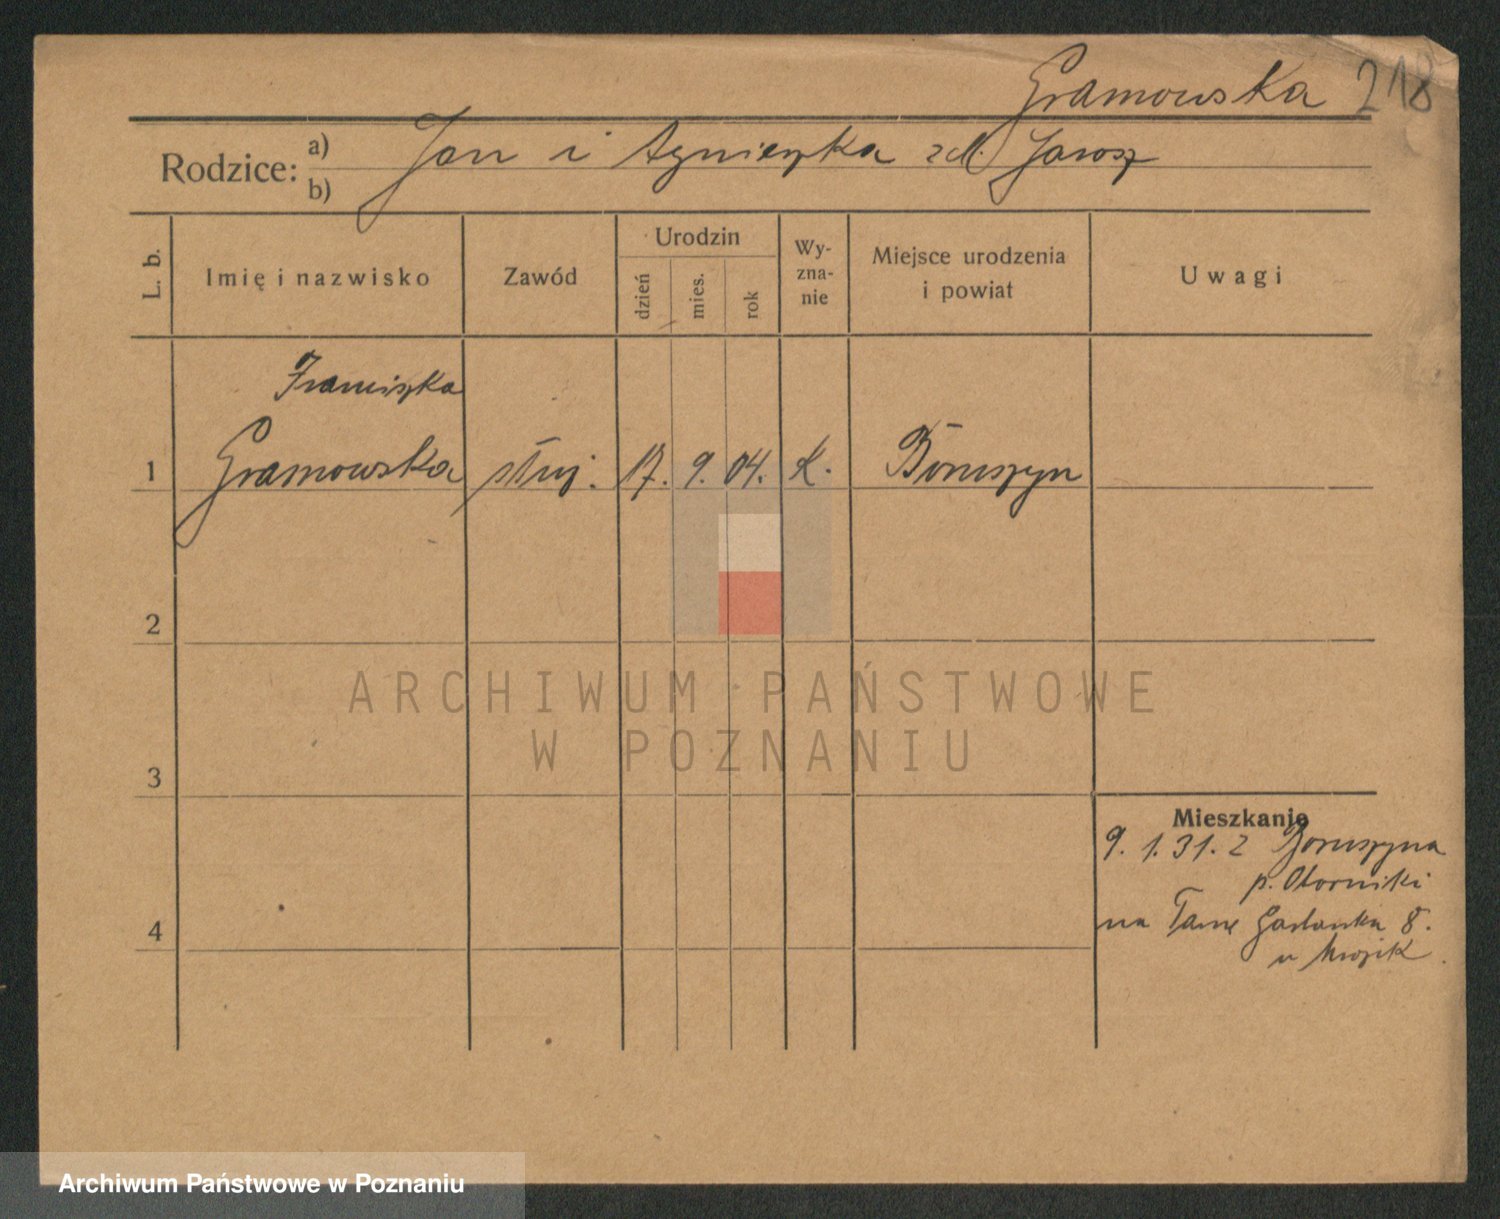 Gramowska 218
Rodzice: a) Jan i Agnieszka z d. Jarosz
b)
L. b. Imię i nazwisko Zawód Urodzin dzień mies. rok Wy-zna-nie Miejsce urodzenia i powiat Uwagi
Franciszka
1 Gramowska służ. 17. 9. 04. K. Boruszyn
2
3
4
Mieszkanie
9. 1. 31. z Boruszyna
p. Oborniki
na Tamę Garbarska 8.
u
ARCHIWUM PAŃSTWOWE
W POZNANIU
Archiwum Państwowe w Poznaniu